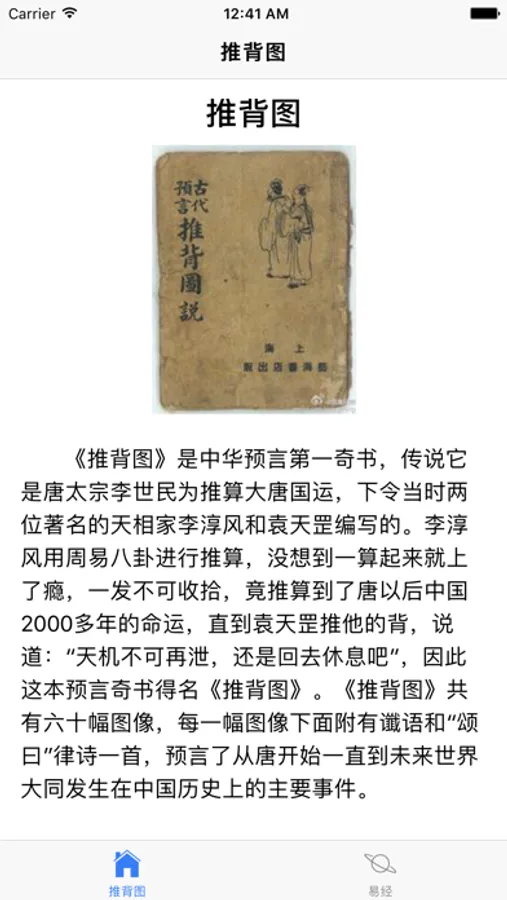 Carrier
12:41 AM
推背图
推背图
古代
預言
推背圖説
上海
書店出版
《推背图》是中华预言第一奇书，传说它
是唐太宗李世民为推算大唐国运，下令当时两
位著名的天相家李淳风和袁天罡编写的。李淳
风用周易八卦进行推算，没想到一算起来就上
了瘾，一发不可收拾，竟推算到了唐以后中国
2000多年的命运，直到袁天罡推他的背，说
道：“天机不可再泄，还是回去休息吧”，因此
这本预言奇书得名《推背图》。《推背图》共
有六十幅图像，每一幅图像下面附有谶语和“颂
曰”律诗一首，预言了从唐开始一直到未来世界
大同发生在中国历史上的主要事件。
推背图
易经